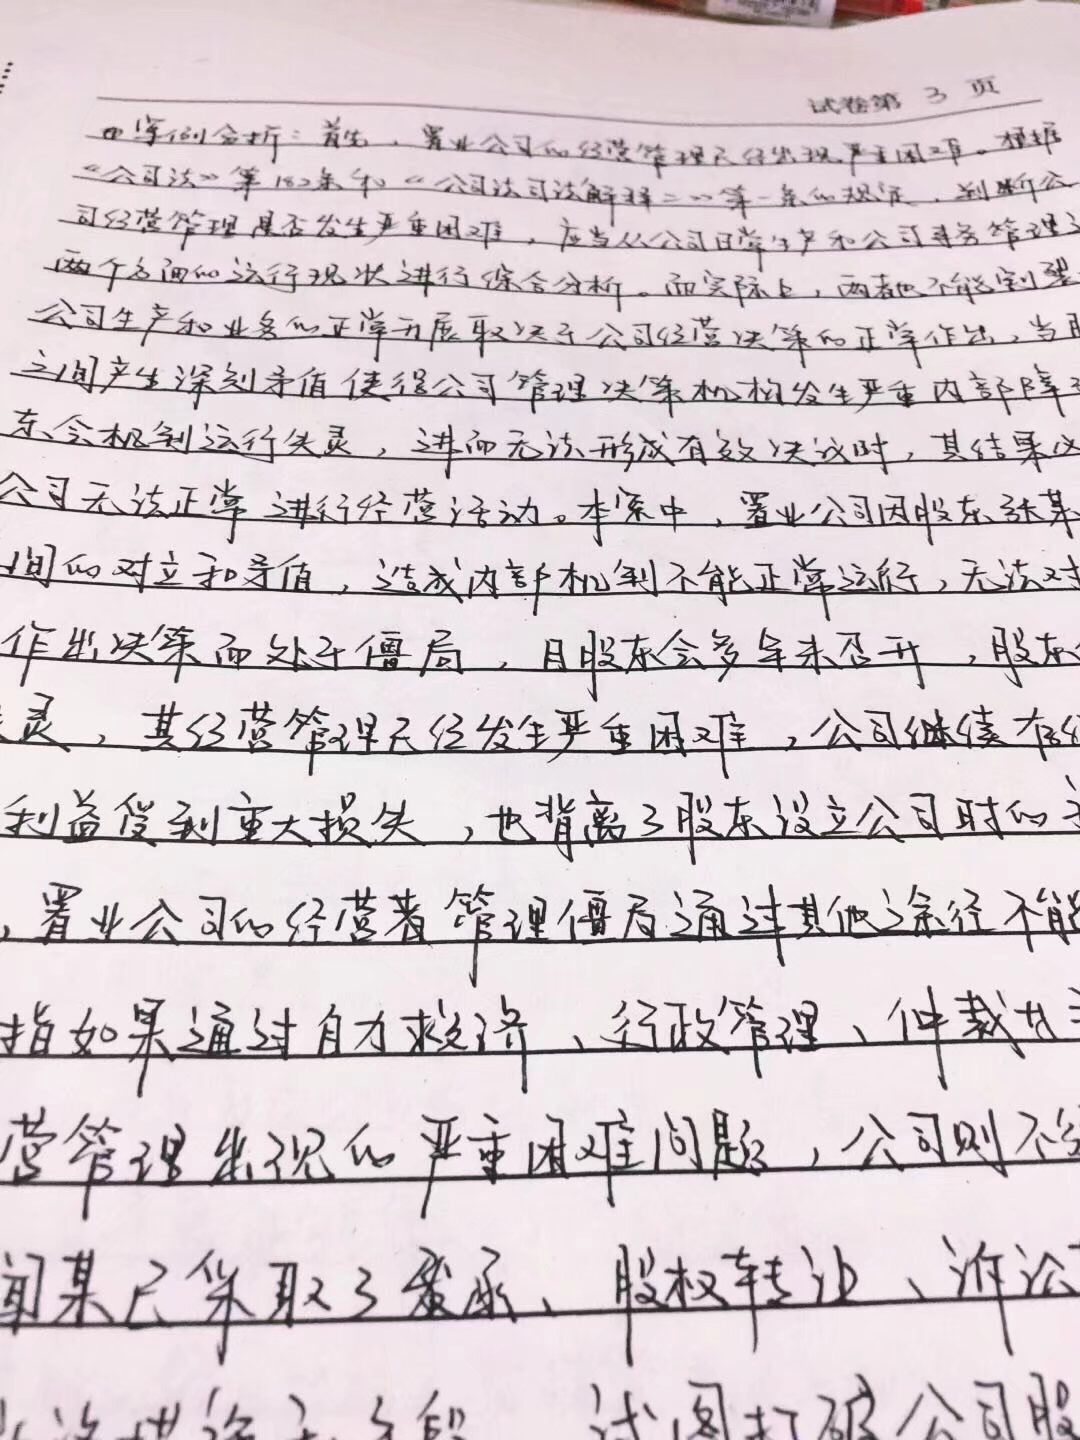 试卷第 3 页
四 案例分析：首先，置业公司的经营管理已经出现严重困难。根据
《公司法》第182条和《公司法司法解释二》第一条的规定，判断公
司经营管理是否发生严重困难，应当从公司日常生产和公司事务管理
两个方面的运行现状进行综合分析。而实际上，两者也不能割裂
公司生产和业务的正常开展取决于公司经营决策的正常作出，当股
之间产生深刻矛值使得公司管理决策机构发生严重内部障
东会机制运行失灵，进而无法形成有效决议时，其结果必
公司无法正常进行经营活动。本案中，置业公司因股东张某
间的对立和矛值，造成内部机制不能正常运行，无法对
作出决策而处于僵局，且股东会多年未召开，股东
灵，其经营管理已经发生严重困难，公司继续存续
利益受到重大损失，也背离了股东设立公司时的
，置业公司的经营者管理僵局通过其他途径不能
指如果通过自力救济、行政管理、仲裁
营管理出现的严重困难问题，公司则不
闻某已采取了 股权转让、诉讼
试图打破公司股